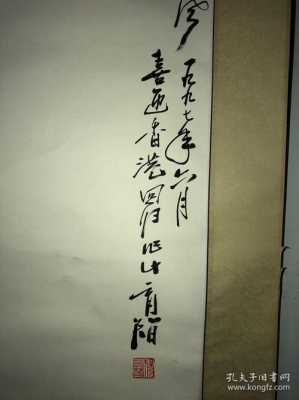 一九九七年六月
喜迎香港回归作此
孔夫子旧书网
kongfz.com